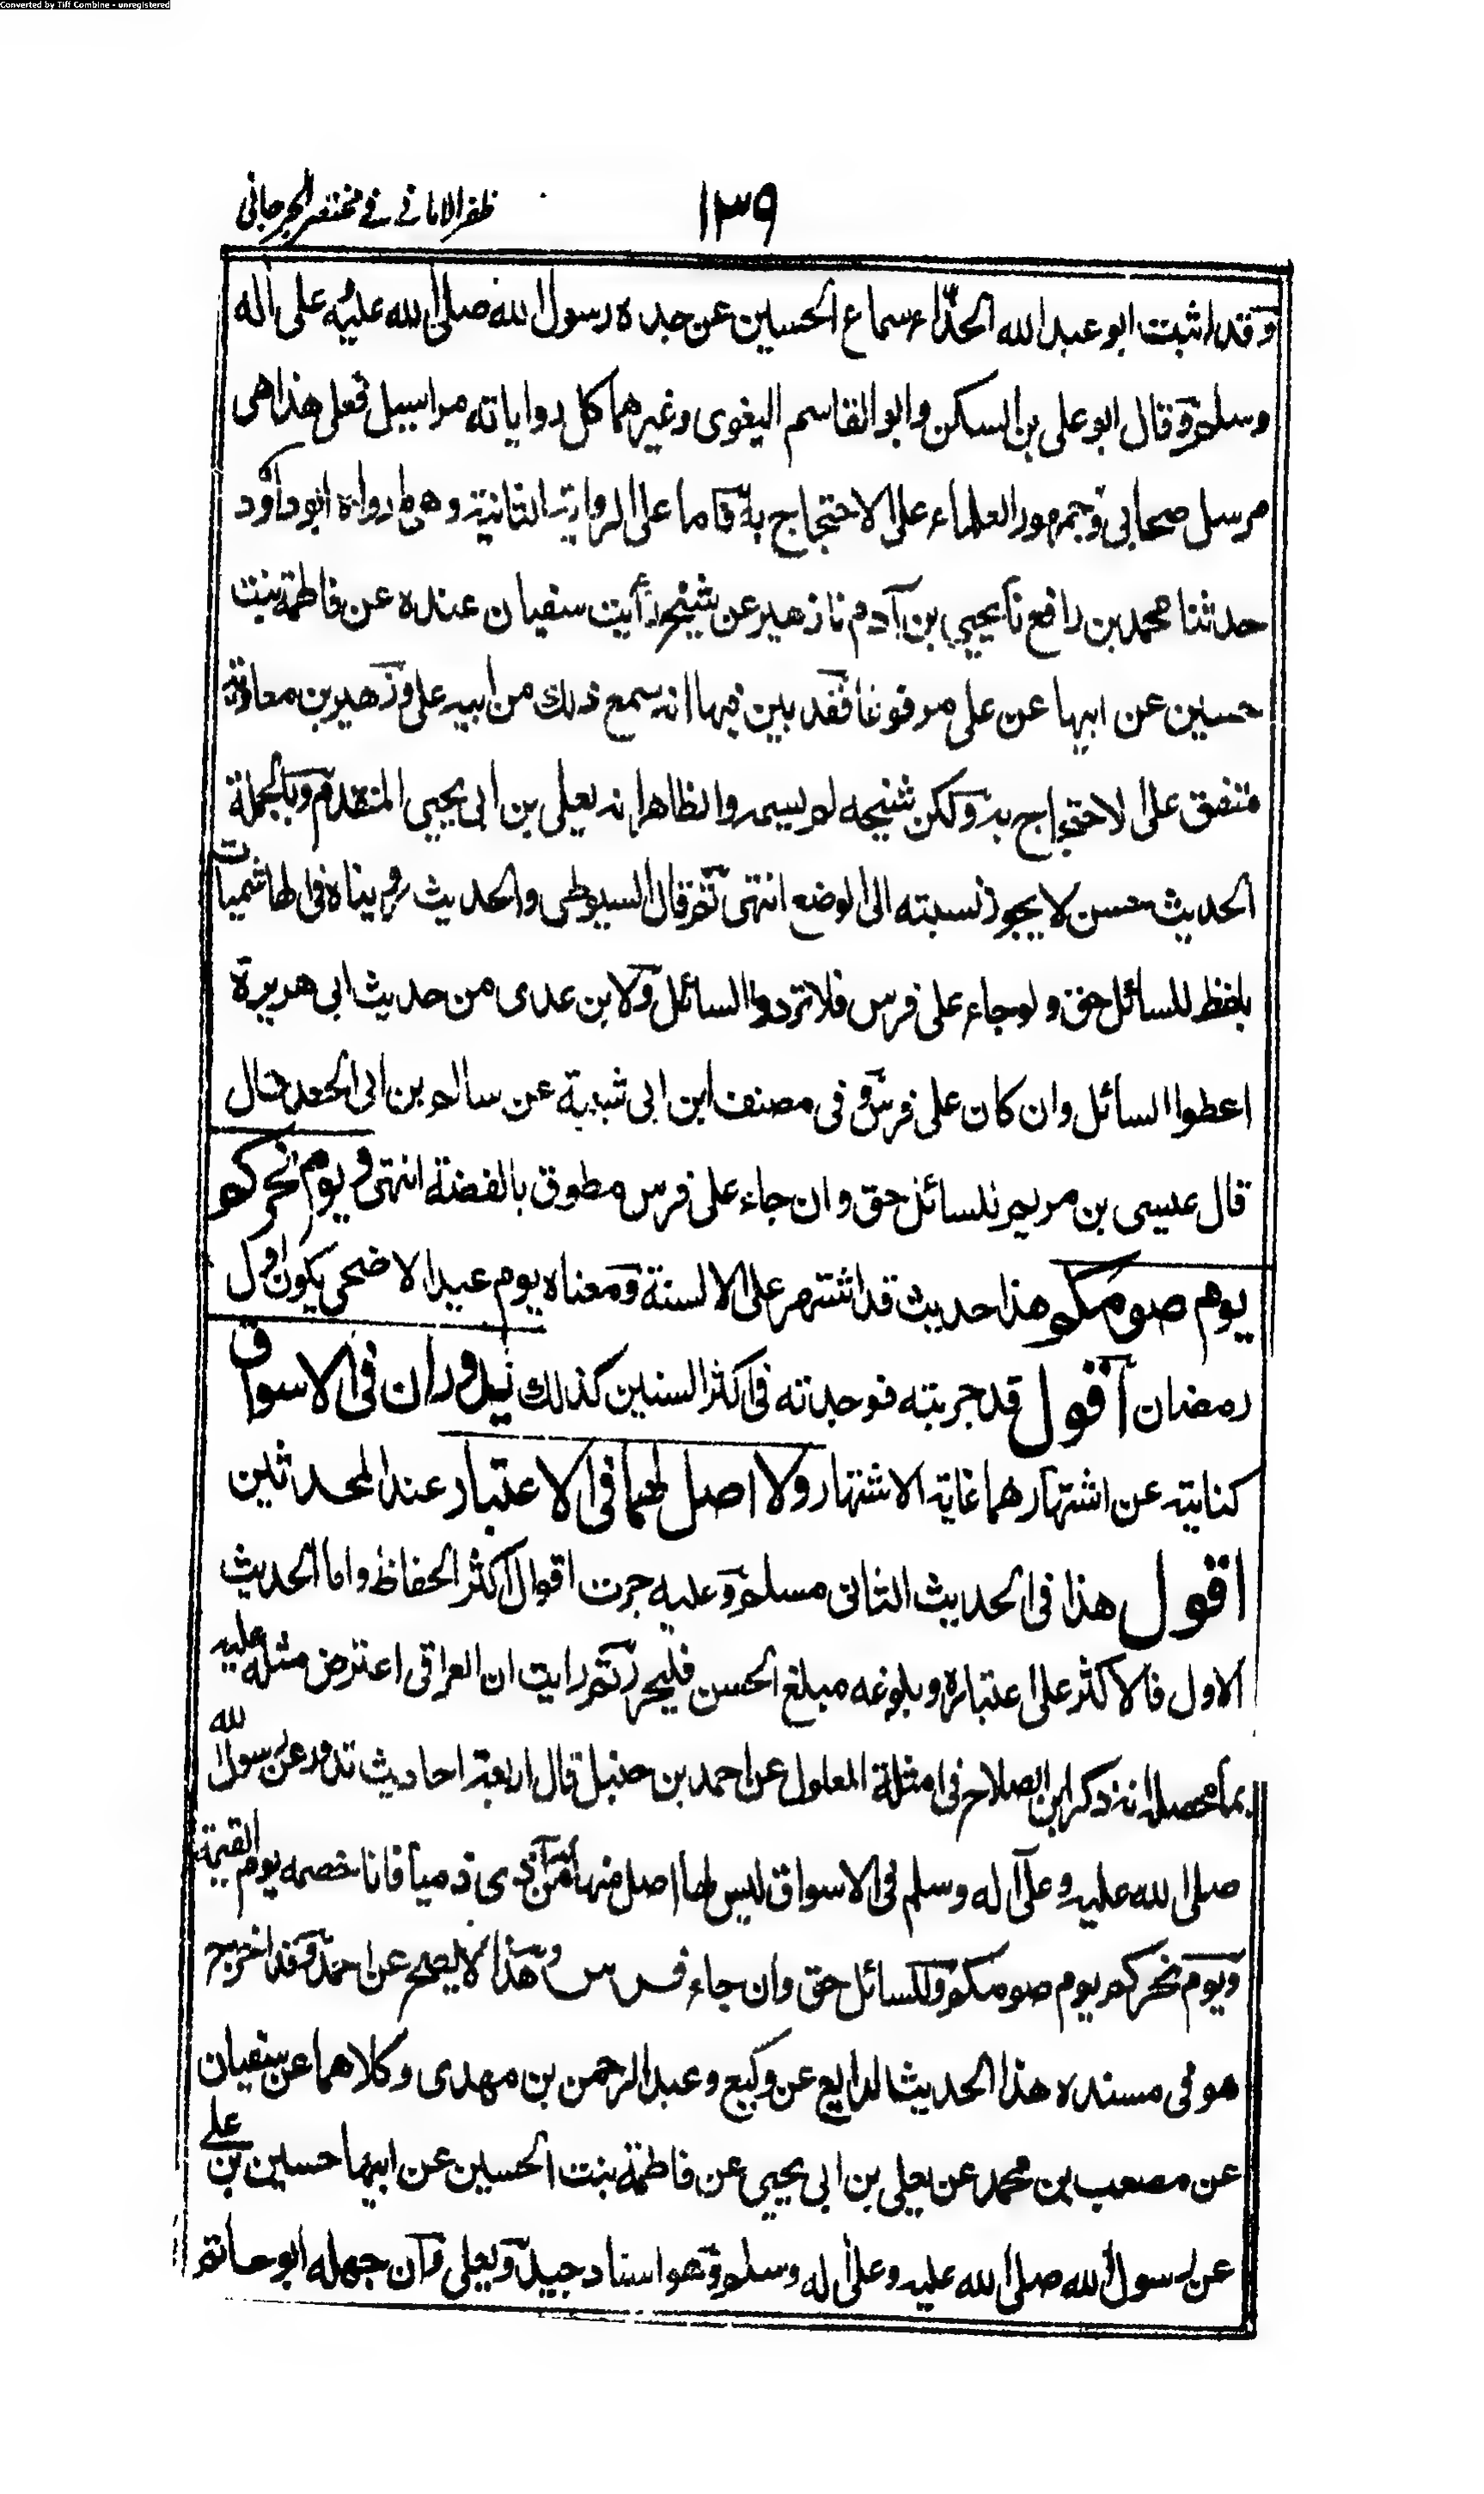 Converted by Tiff Combine - unregistered
ظفر الامانے فے مختصر الجرجانی
١٣٩
وقد اثبت ابو عبد الله الحذّاء سماع الحسین عن جده رسول الله صلی الله علیه وعلی اله
وسلم وقال ابو علی بن السکن وابو القاسم البغوی وغیرهما کل روایاته مراسیل فعلی هذا هی
مرسل صحابی وجمهور العلماء علی الاحتجاج به واما علی الروایة الثانیة وهی ما رواه ابو داؤد
حدثنا محمد بن رافع نا یحیی بن آدم نا زهیر عن شیخ رأیت سفیان عنده عن فاطمة بنت
حسین عن ابیها عن علی مرفوعا فقد بین فیها انه سمع ذلك من ابیه علی وزهیر بن معاویة
متفق علی الاحتجاج به ولکن شیخه لم یسم والظاهر انه یعلی بن ابی یحیی المتقدم وبالجملة
الحدیث حسن لا یجوز نسبته الی الوضع انتهی ثم قال السیوطی والحدیث رویناه فی الهاشمیات
بلفظ للسائل حق ولو جاء علی فرس فلا تردوا السائل ولابن عدی من حدیث ابی هریرة
اعطوا السائل وان کان علی فرس و فی مصنف ابن ابی شیبة عن سالم بن ابی الجعد قال
قال عیسی بن مریم للسائل حق وان جاء علی فرس مطوق بالفضة انتهی ویوم نحرکم
یوم صومکم هذا حدیث قد اشتهر علی الالسنة ومعناه یوم عید الاضحی یکون اول
رمضان اقول قد جربته فوجدته فی اکثر السنین کذلك یدوران فی الاسواق
کنایته عن اشتهارهما غایة الاشتهار ولا اصل لهما فی الاعتبار عند المحدثین
اقول هذا فی الحدیث الثانی مسلم وعلیه جرت اقوال اکثر الحفاظ واما الحدیث
الاول فالاکثر علی اعتباره وبلوغه مبلغ الحسن فلیحرر ثم رایت ان العراقی اعترض مثله علیه
بما محصله انه ذکر ابن الصلاح فی امثلة المعلول عن احمد بن حنبل قال اربعة احادیث تدور عن رسول الله
صلی الله علیه وعلی اله وسلم فی الاسواق لیس لها اصل منها من اذی ذمیا فانا خصمه یوم القیمة
ویوم نحرکم یوم صومکم وللسائل حق وان جاء فرس وهذا لا یصح عن احمد وقد اخرج
هو فی مسنده هذا الحدیث الرابع عن وکیع وعبد الرحمن بن مهدی وکلاهما عن سفیان
عن مصعب بن محمد عن یعلی بن ابی یحیی عن فاطمة بنت الحسین عن ابیها حسین بن علی
عن رسول الله صلی الله علیه وعلی اله وسلم وهو اسناد جید ویعلی وان جهله ابو حاتم